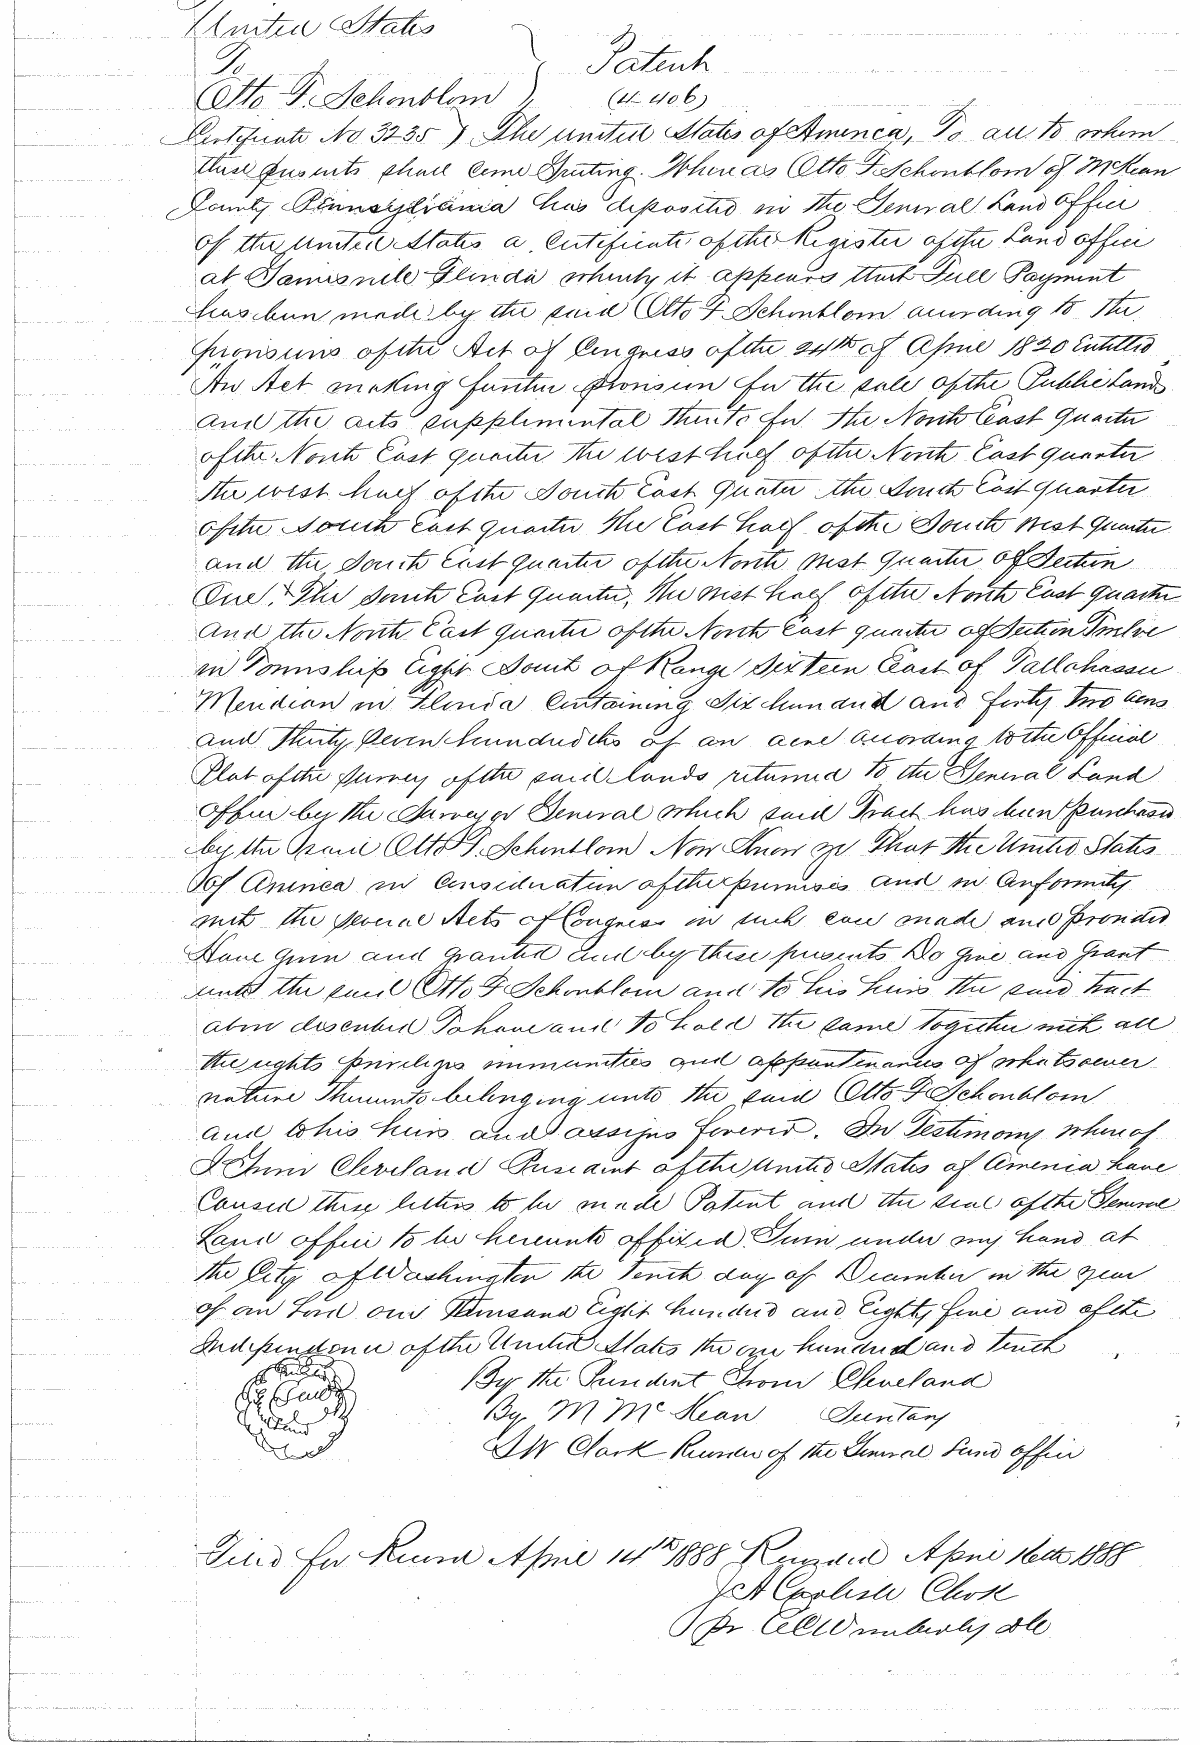 United States
To Patent
Otto F. Schonblom (4-406)
Certificate No 3235 } The United States of America, To all to whom
these presents shall come Greeting. Whereas Otto F. Schonblom of McKean
County Pennsylvania has deposited in the General Land Office
of the United States a Certificate of the Register of the Land office
at Gainesville Florida whereby it appears that Full Payment
has been made by the said Otto F. Schonblom according to the
provisions of the Act of Congress of the 24th of April 1820 Entitled
"An Act making further provision for the sale of the Public Lands
and the acts supplimental thereto for the North East Quarter
of the North East quarter the west half of the North East quarter
the west half of the South East Quater the South East Quarter
of the South East quarter the East half of the South West Quarter
and the South East Quarter of the North West Quarter of Section
One, & The South East Quarter, the West half of the North East quarter
And the North East quarter of the North East quarter of Section Twelve
in Township Eight South of Range Sixteen East of Tallahassee
Meridian in Florida Containing Six hundred and forty two acres
and Thirty Seven hundredths of an acre according to the Official
Plat of the Survey of the said lands returned to the General Land
office by the Surveyor General which said Tract has been purchased
by the said Otto F. Schonblom Now Know ye That the United States
of America in Consideration of the premises and in Conformity
with the several Acts of Congress in such case made and provided
Have given and granted and by these presents Do give and grant
unto the said Otto F Schonblom and to his heirs the said tract
above described To have and to hold the same together with all
the rights priviliges immunities and appurtenances of whatsoever
nature Thereunto belonging unto the said Otto F Schonblom
and to his heirs and assigns forever. In Testimony whereof
I Grover Cleveland President of the United States of America have
Caused these letters to be made Patent and the seal of the General
Land office to be hereunto affixed. Given under my hand at
the City of Washington the Tenth day of December in the year
of our Lord one Thousand Eight hundred and Eighty five and of the
Independence of the United States the one hundred and tenth
By the President Grover Cleveland
By M McKean Secretary
S W Clark Recorder of the General Land office
Filed for Record April 14th 1888 Recorded April 16th 1888
J A Carlisle Clerk
Pr Wimberly DC